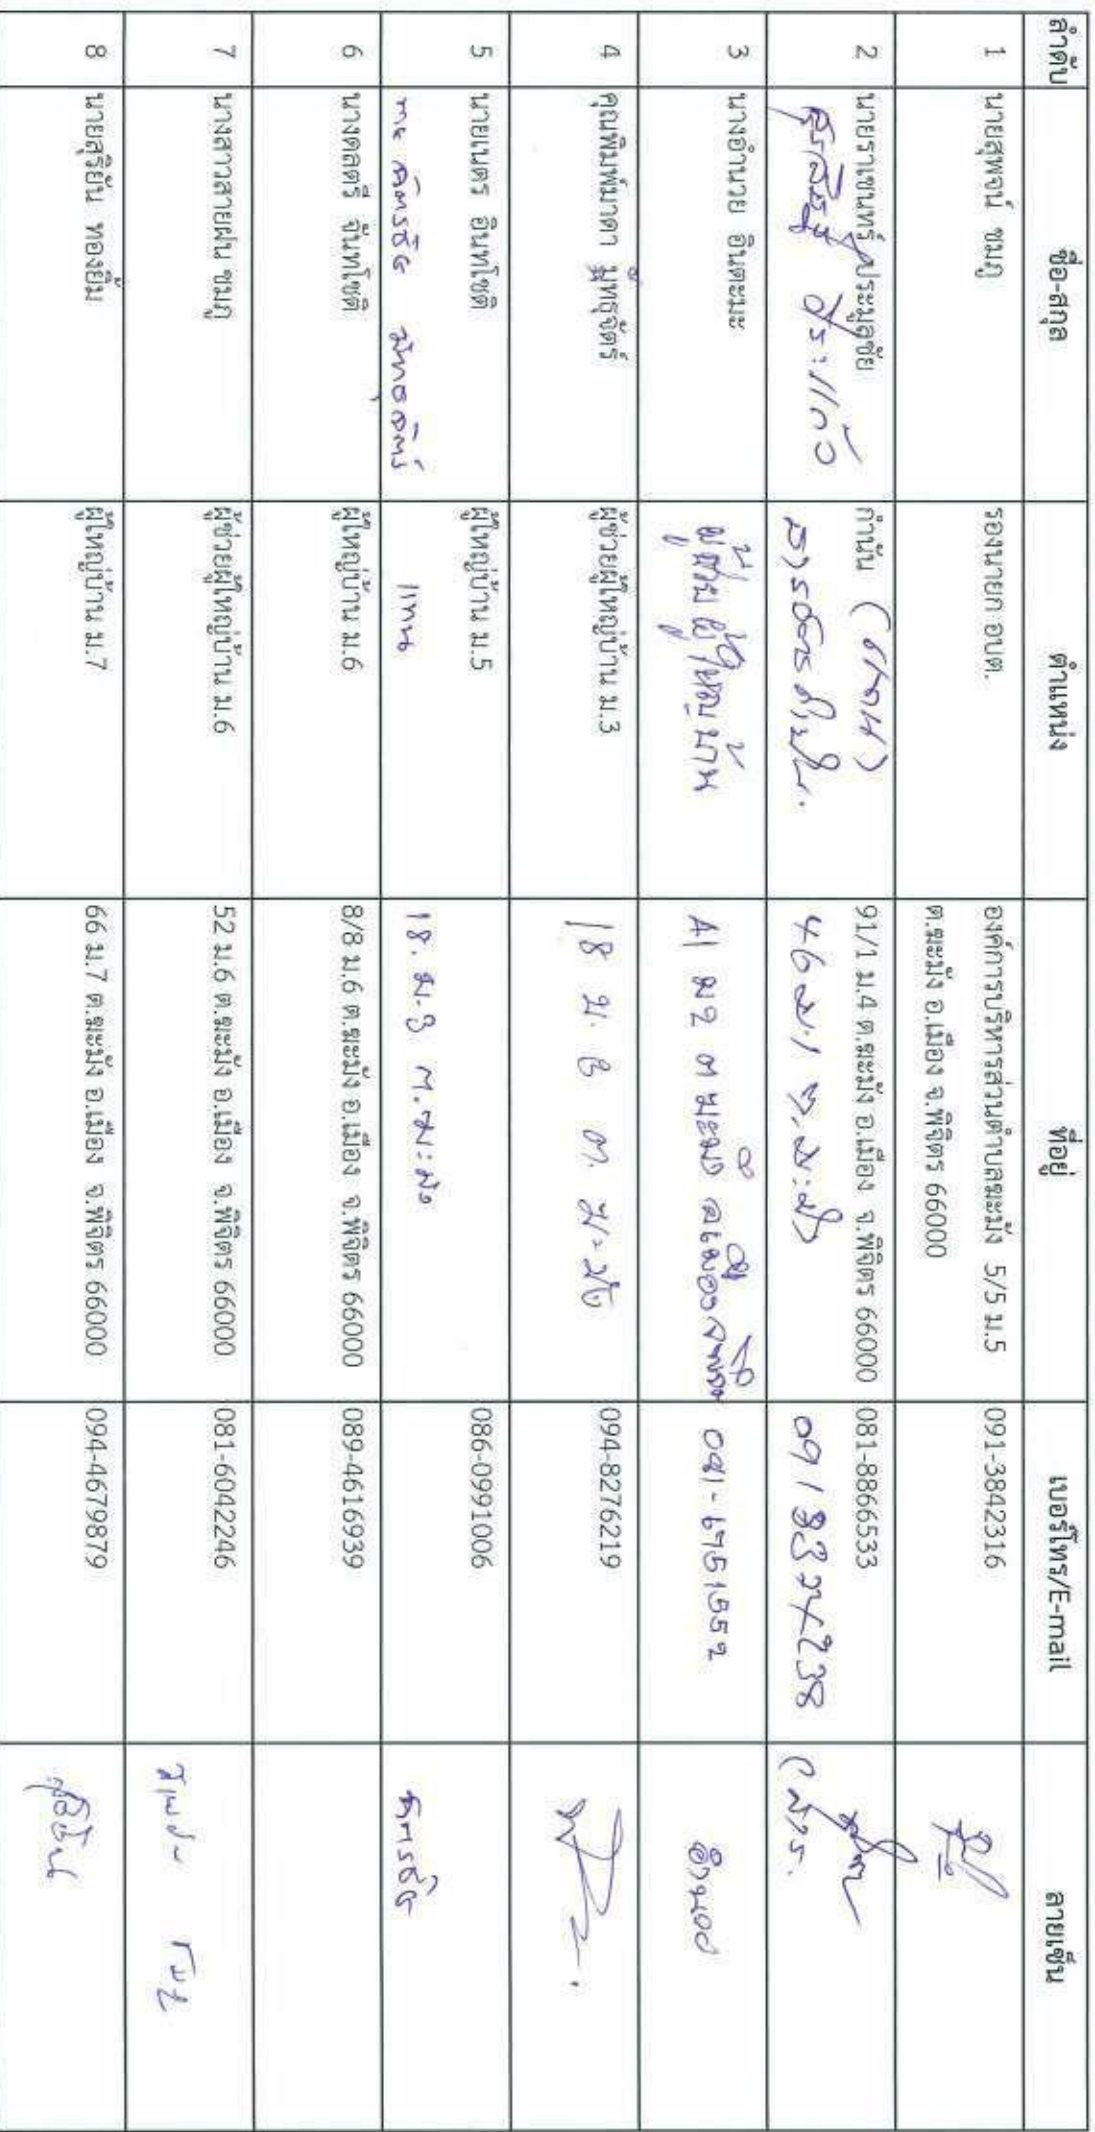 ลำดับ ชื่อ-สกุล ตำแหน่ง ที่อยู่ เบอร์โทร/E-mail ลายเซ็น
1 นายสุพจน์ ชมภู รองนายก อบต. องค์การบริหารส่วนตำบลฆะมัง 5/5 ม.5 091-3842316
ต.ฆะมัง อ.เมือง จ.พิจิตร 66000
2 นายราเชนทร์ ประมูลชัย กำนัน (แทน) 91/1 ม.4 ต.ฆะมัง อ.เมือง จ.พิจิตร 66000 081-8866533
สระแก้ว สารวัตรกำนัน. 46 ม.1 ต.ฆะมัง
3 นางอำนวย อินตะมะ ผู้ช่วยผู้ใหญ่บ้าน 41 ม2 ต ฆะมัง อเมือง จพิจิตร 081-6751552 อำนวย
4 คุณพิมพ์มาดา มุ้ทธุจัตร์ ผู้ช่วยผู้ใหญ่บ้าน ม.3 18 ม. 3 ต. ฆะมัง 094-8276219
5 นายเนตร อินทโชติ ผู้ใหญ่บ้าน ม.5 086-0991006
แทน 18. ม.3 ต.ฆะมัง
6 นางดลตรี จันทโชติ ผู้ใหญ่บ้าน ม.6 8/8 ม.6 ต.ฆะมัง อ.เมือง จ.พิจิตร 66000 089-4616939
7 นางสาวสายฝน ชมภู ผู้ช่วยผู้ใหญ่บ้าน ม.6 52 ม.6 ต.ฆะมัง อ.เมือง จ.พิจิตร 66000 081-6042246
8 นายสุริยัน ทองยิ้ม ผู้ใหญ่บ้าน ม.7 66 ม.7 ต.ฆะมัง อ.เมือง จ.พิจิตร 66000 094-4679879 สุริยัน